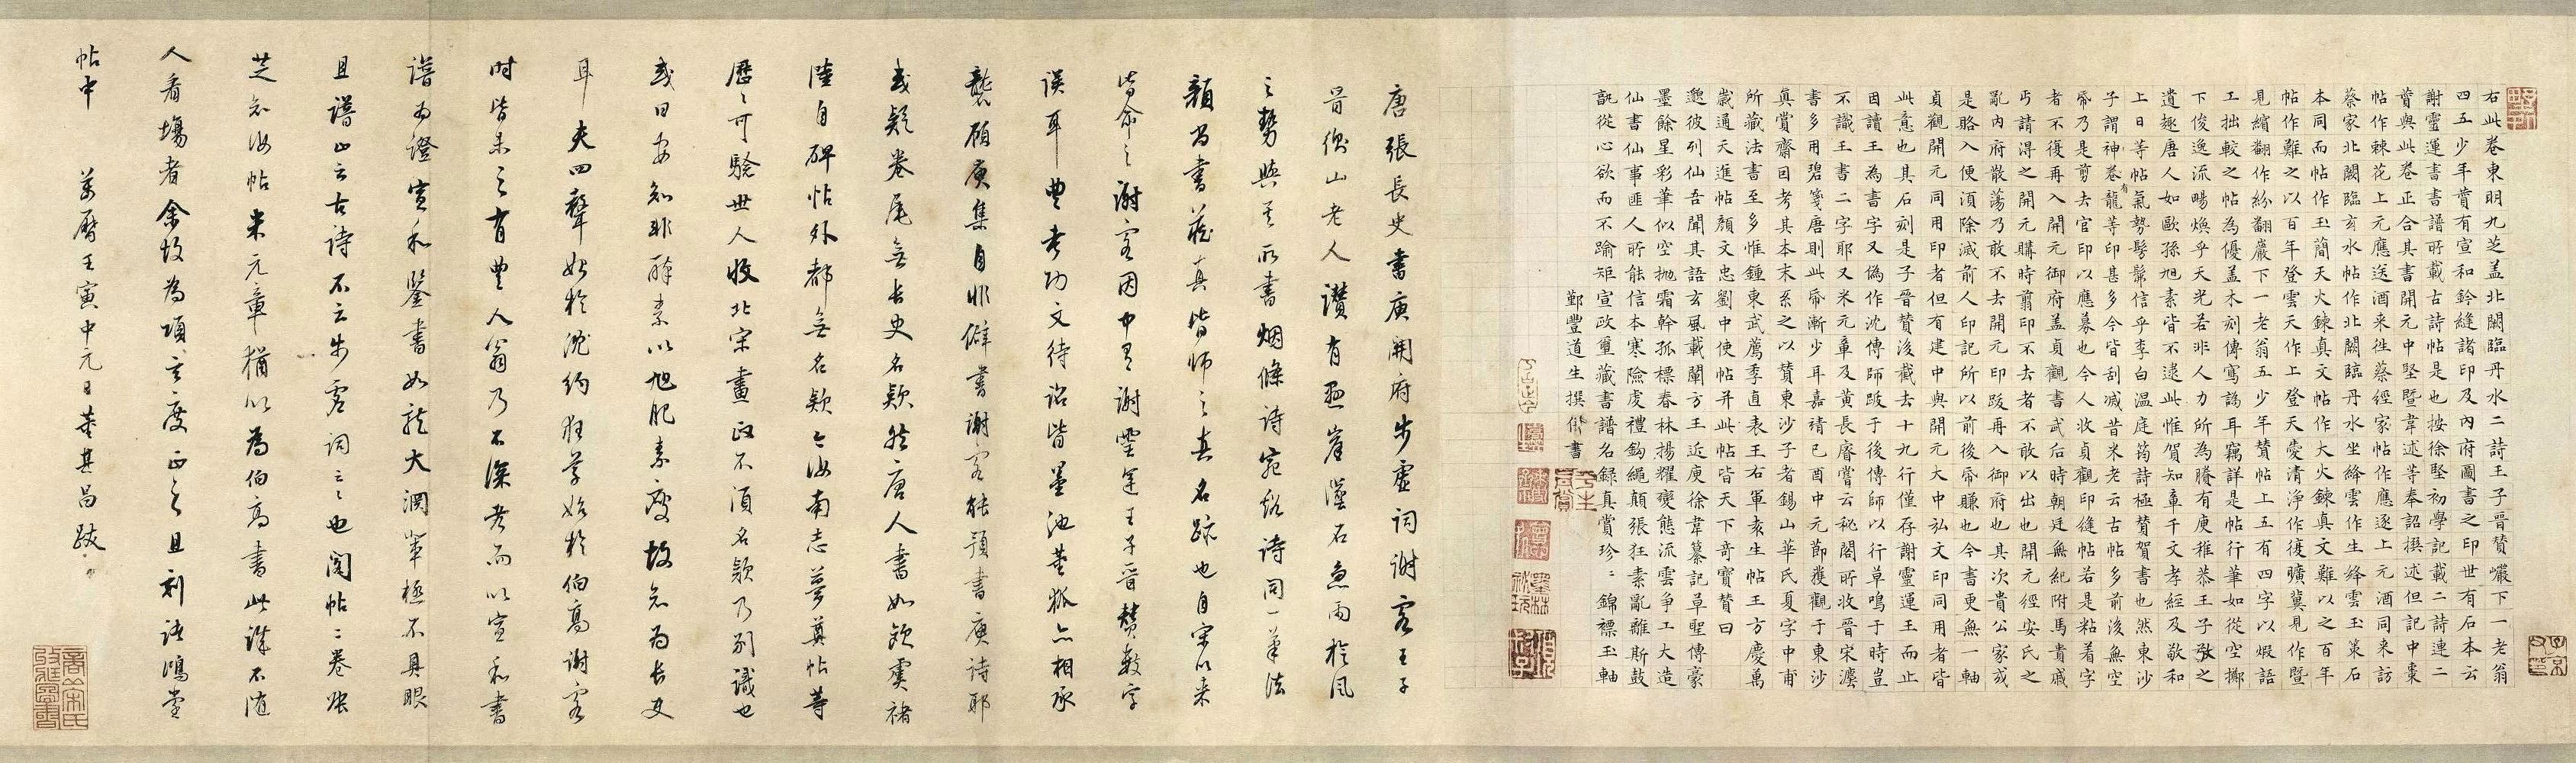 右此卷東明九芝盖北闕臨丹水二詩王子晉贊巖下一老翁
四五少年贊有宣和鈐縫諸印及內府圖書之印世有石本云
謝靈運書書譜所載古詩帖是也按徐堅初學記載二詩連二
贊與此卷正合其書開元中堅暨韋述等奉詔撰述但記中棗
帖作棘花上元應送酒来徃蔡經家帖作應逐上元酒同来訪
蔡家北闕臨玄水帖作北闕臨丹水坐絳雲作生絳雲玉策石
本同而帖作玉簡天火鍊真文帖作大火鍊真文難以之百年
帖作難之以百年登雲天作上登天愛清淨作復曠冀見作暨
見繽翻作紛翻巖下一老翁五少年贊帖上五有四字以煆語
工拙較之帖為優盖木刻傳寫譌耳竊詳是帖行筆如從空擲
下俊逸流暢煥乎天光若非人力所為騰有庾稚恭王子敬之
遺趣唐人如歐孫旭素皆不逮此惟賀知章千文孝經及敬和
上日等帖氣勢髣髴信乎李白溫庭筠詩極贊賀書也然東沙
子謂卷有神龍等印甚多今皆刮滅昔米老云古帖多前後無空
帋乃是剪去官印以應募也今人收貞觀印縫帖若是粘着字
者不復再入開元御府盖貞觀書武后時朝廷無紀附馬貴戚
丐請得之開元購時翦印不去者不敢以出也開元經安氏之
亂內府散蕩乃敢不去開元印跋再入御府也其次貴公家或
是賂入便須除滅前人印記所以前後帋賺也今書更無一軸
貞觀開元同用印者但有建中與開元大中弘文印同用者皆
此意也其石刻是子晉贊後截去十九行僅存謝靈運王而止
因讀王為書字又偽作沈傳師跋于後傳師以行草鳴于時豈
不識王書二字耶又米元章及黃長睿嘗云秘閣所收晉宋瀍
書多用碧箋唐則此帋漸少耳嘉靖己酉中元節獲觀于東沙
真賞齋因考其本末系之以贊東沙子者錫山華氏夏字中甫
所藏法書至多惟鍾東武薦季直表王右軍袁生帖王方慶萬
歲通天進帖顏文忠劉中使帖并此帖皆天下奇寶贊曰
邈彼列仙吾聞其語玄風載闡方王近庾徐韋纂記草聖傳豪
墨餘星彩華似空拋霜幹孤標春林揚耀變態流雲爭工大造
仙書仙事匪人所能信本寒險虔禮鈎繩顛張狂素亂離斯鼓
訛從心欲而不踰矩宣政璽藏書譜名録真賞珍〻錦褾玉軸
鄞豐道生撰并書
唐張長史書庾開府步虛詞謝客王子
晉衡山老人讚有懸崖墜石急雨旋風
之勢與其所書烟條詩宛谿詩同一筆法
顏尚書藏真皆師之真名跡也自宋以来
皆命之謝客因中有謝靈運王子晉贊數字
誤耳豐考功文待詔皆墨池董狐亦相承
襲顧庾集自非僻書謝客能預書庾詩耶
或疑卷尾無長史名款然唐人書如歐虞褚
陸自碑帖外都無名款今汝南志夢奠帖等
歷〻可驗世人收北宋畫政不須名款乃別識也
或曰安知非醉素以旭肥素瘦故知為長史
耳夫四聲始於沈約狂草始於伯高謝客
時皆未之有豐人翁乃不深考而以宣和書
譜為證宣和鑒書如龍大淵輩極不具眼
且譜止云古詩不云步虛詞云〻也閣帖二卷張
芝知汝帖米元章猶以為伯高書此誰不随
人看場者余故為項玄度正之且刻諸鴻堂
帖中 萬曆壬寅中元日董其昌跋